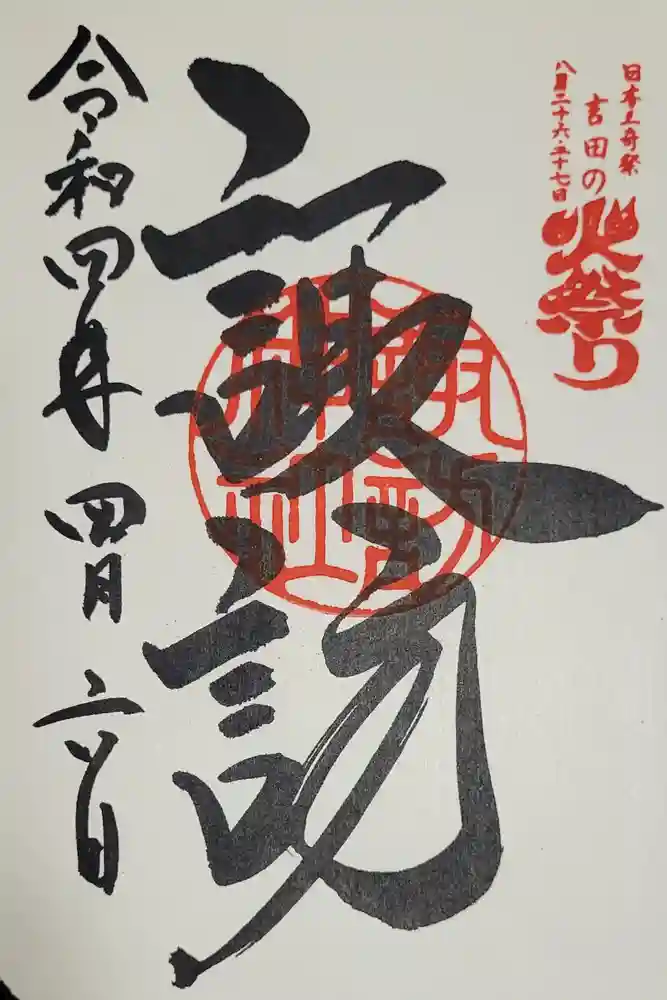 日本三奇祭
吉田の
火祭り
八月二十六・二十七日
諏訪
令和四年 四月 二日